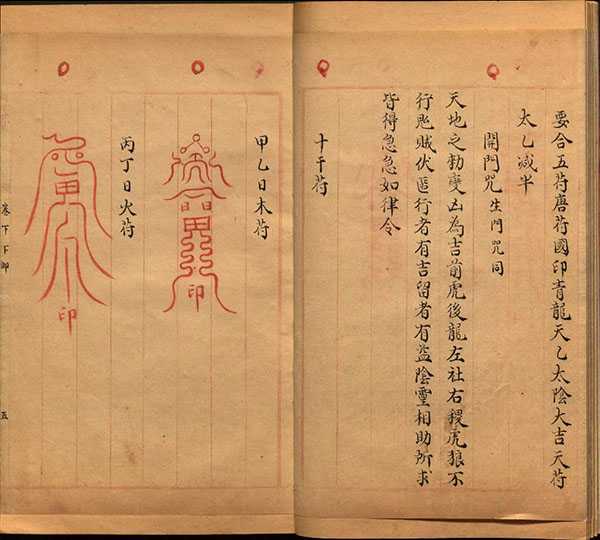 要合五苻唐苻國印青龍天乙太陰大吉天苻
太乙減半
開門咒生門咒同
天地之勅變凶為吉前虎後龍左社右稷虎狼不
行逃賊伏匿行者有吉留者有盜陰靈相助所求
皆得急急如律令
十干苻
甲乙日木苻
印
丙丁日火苻
印
卷下下卯
五